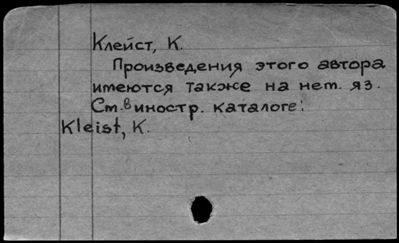 Клейст, К.
Произведения этого автора
имеются также на нем. яз.
См. в иностр. каталоге:
Kleist, K.